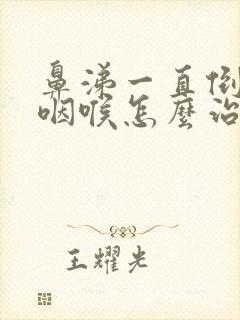 鼻涕一直倒
咽喉怎麼治
王耀光